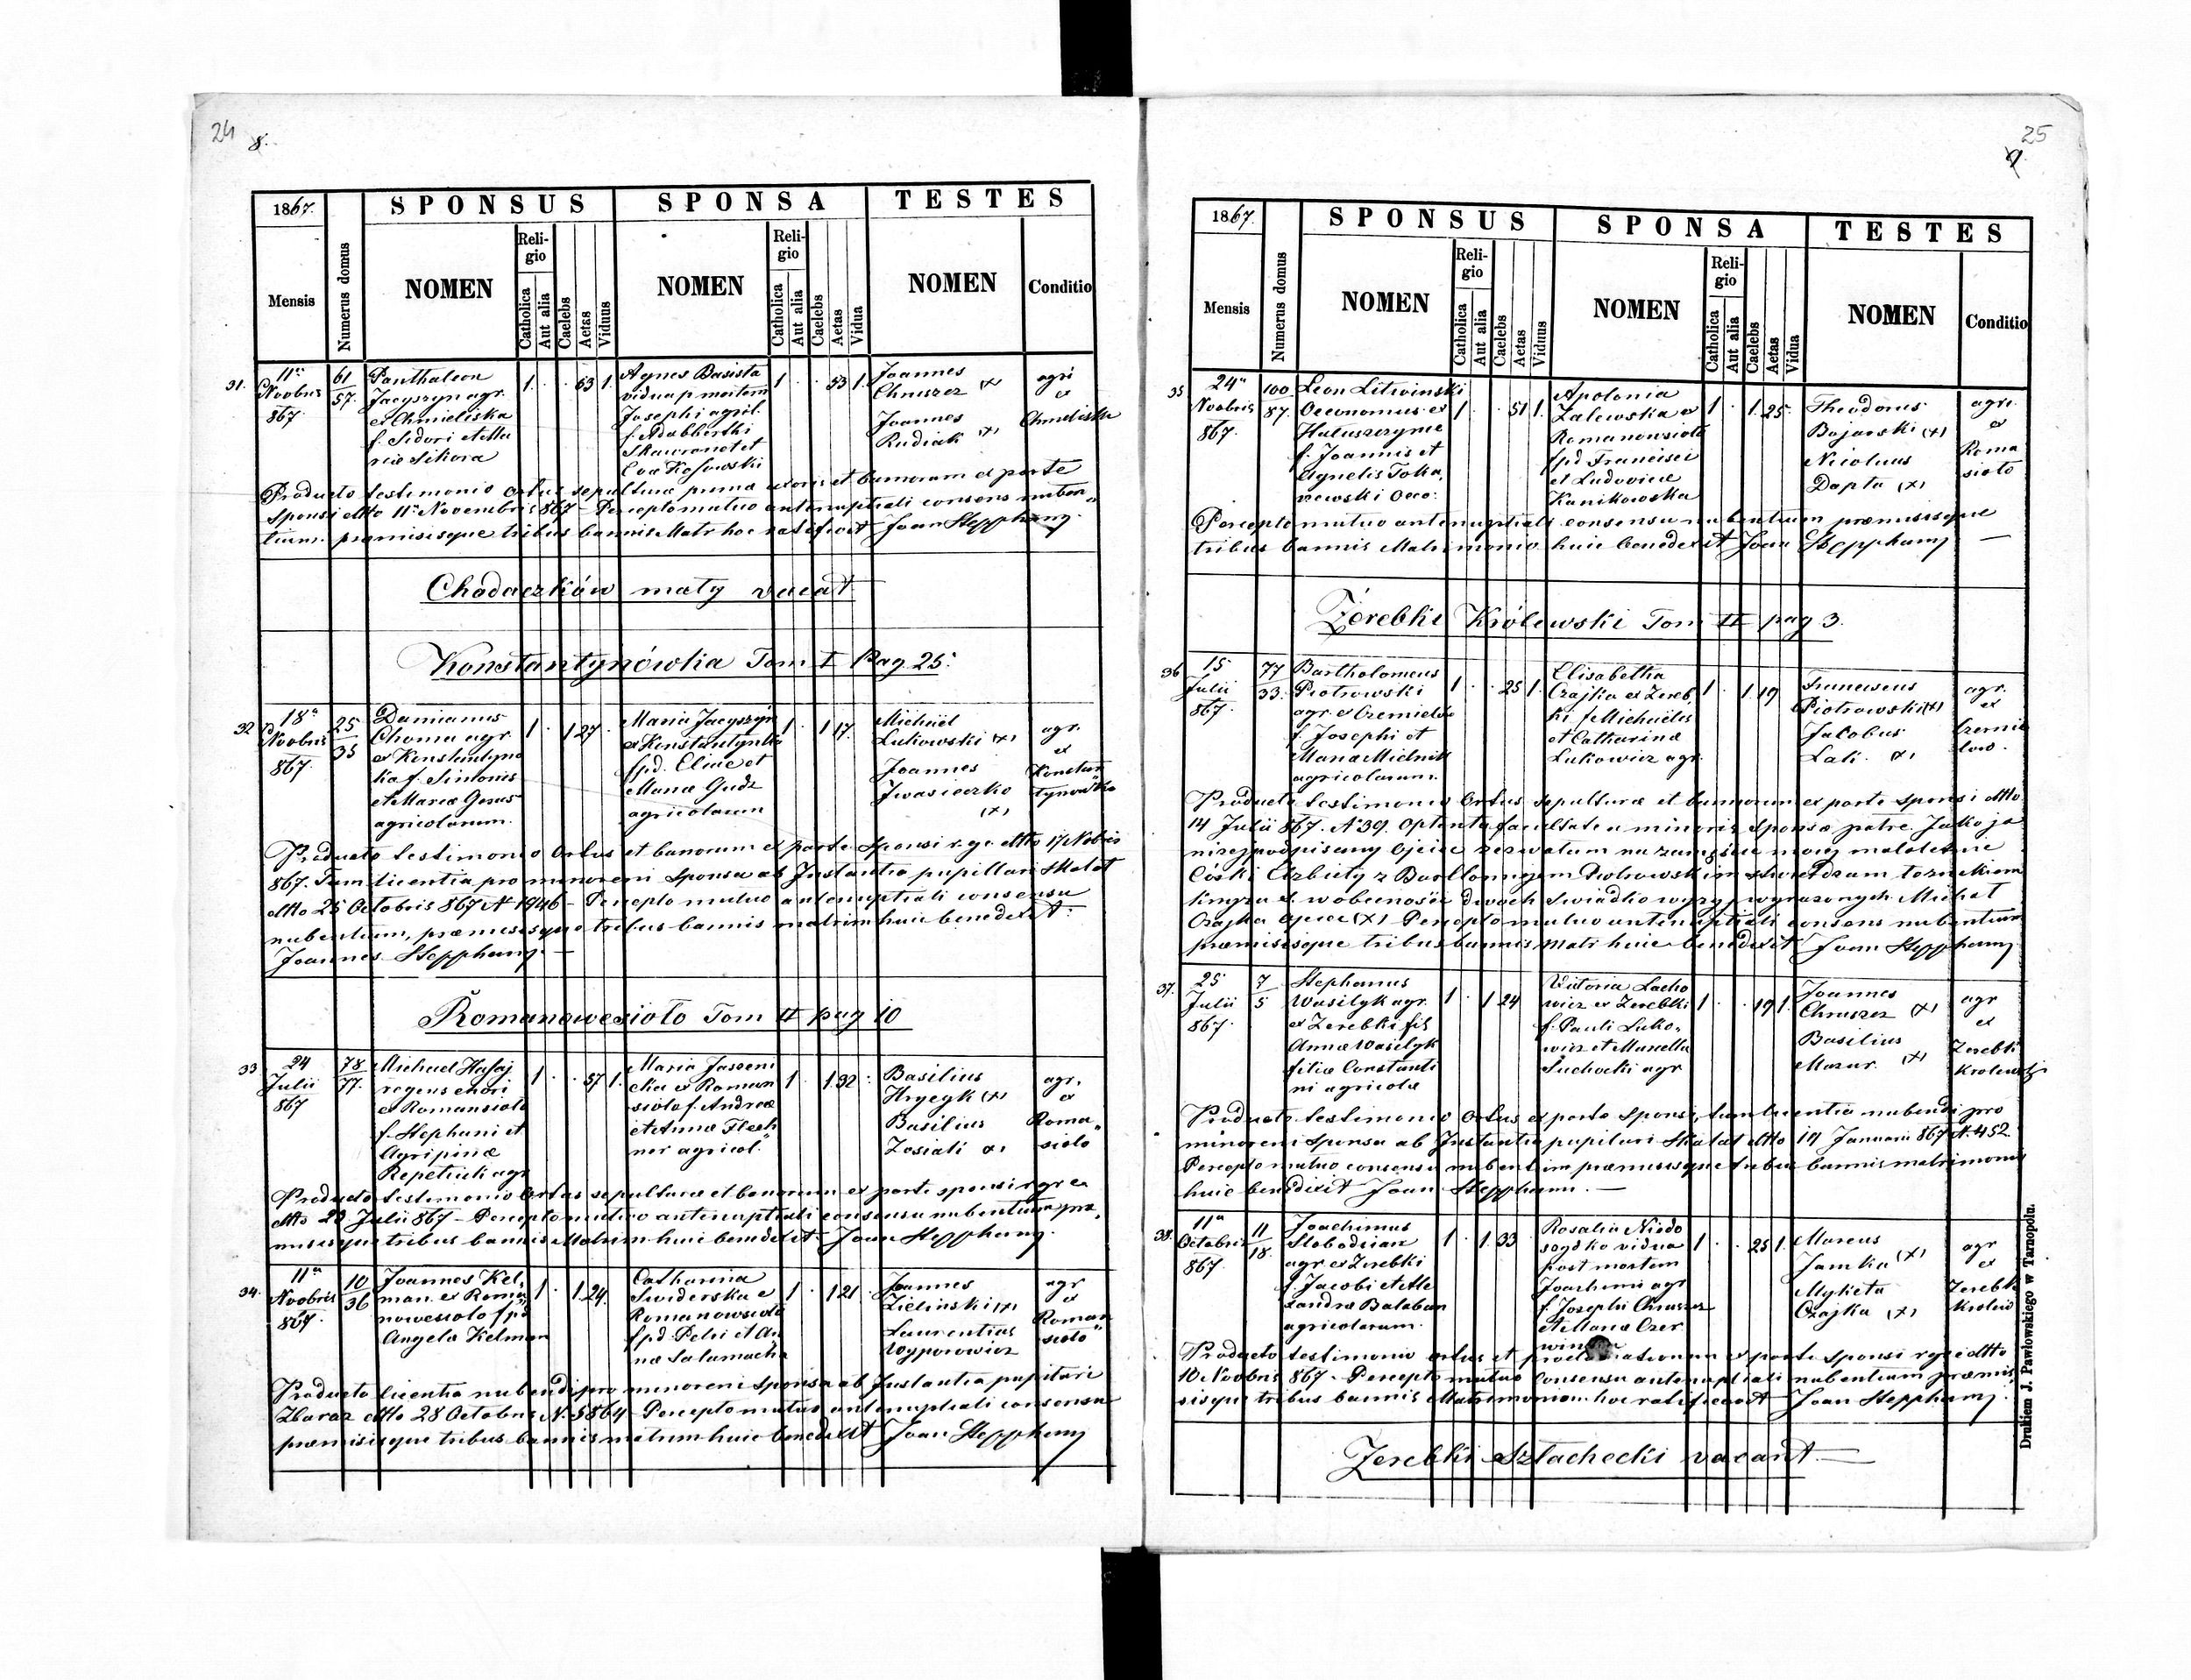 24
8.
1867.
SPONSUS
SPONSA
TESTES
Mensis
Numerus domus
NOMEN
Religio
Catholica
Aut alia
Caelebs
Aetas
Viduus
NOMEN
Religio
Catholica
Aut alia
Caelebs
Aetas
Vidua
NOMEN
Conditio
31.
11a
Novbris
867.
61
57.
Panthaleon
Jacyszyn agr.
ex Chmieliska
f. Sidori et Ma
riæ Sikora
1. 53 1.
Agnes Basista
vidua p. mortem
Josephi agric.
f. Adalberthi
Skawronet et
Eva Kossowski
1 53 1.
Joannes
Chruszcz (x)
Joannes
Rudiak (x)
agri
ex
Chmeliska
Producto testimonio ortus sepulturæ primæ uxoris et banorum ex parte
sponsi ddto 11a Novembris 867 – Percepto mutuo antenuptiali consens nuben„
tium. præmisisque tribus bannis Matr hoc ratificavit Joan Stepphany
Chodaczków mały vacat
Konstantynówka Tom I Pag. 25.
32
18a
Novbris
867.
25
35
Damianus
Choma agr.
ex Konstantyno
ka f. Simonis
et Mariæ Gesus
agricolarum.
1 . . 1 27 .
Maria Jacyszyn
ex Konstantynka
fpd. Eliae et
Mariæ Gudz
agricolarum
1 . 1 17.
Michael
Lukowski (x)
Joannes
Iwasieczko
(x)
agr.
ex
Konstan
tynówka
Producto testimonio ortus et banorum ex parte sponsi r. gr. ddto 17 Nobris
867. Tum licentia pro minoreni sponsa ab Instantia pupillari Skalat
ddto 25 Octobris 867 N 1946 – Percepto mutuo antenuptiali consensu
nubentium, præmisisque tribus bannis matrim huic benedixit.
Joannes Stepphany –
Romanowesioło Tom II pag 10
33
24
Julii
867
78
77.
Michael Hasaj
regens chori
ex Romansioło
f. Stephani et
Agripinæ
Repetiuk agr
1 . . 57 1.
Maria Jaseni
cka ex Roman
sioło f. Andreæ
et Annæ Flech
ner agricol.
1 . 1. 32 .
Basilius
Hrycyk (x)
Basilius
Zosiati (x)
agr.
ex
Roma„
sioło
Producto testimonio ortus sepulturæ et banorum ex parte sponsi r gr c
ddto 23 Julii 867 – Percepto mutuo antenuptiali consensu nubentium præ„
misisque tribus bannis Matrim huic benedixit. Joan Stepphany.
34.
11a
Novbris
867.
10
36
Joannes Kel„
man. ex Roma„
nowesioło fpd
Angela Kelman
1 . . 1. 24.
Catharina
Swiderska e
Romanowsioło
fpd Petri et An
næ Salamacha
1 . 1 21 .
Joannes
Zielinski (x)
Laurentius
Wyporowicz
agr
ex
Roman
sioło
Producto licentia nubendi pro minoreni sponsa ab Instantia pupilari
Zbaraz ddto 28 Octobris N. 5864 – Percepto mutuo antenuptiali consensu
præmisisque tribus bannis matrim huic benedixit Joan Stepphany
25
9.
1867.
SPONSUS
SPONSA
TESTES
Mensis
Numerus domus
NOMEN
Religio
Catholica
Aut alia
Caelebs
Aetas
Viduus
NOMEN
Religio
Catholica
Aut alia
Caelebs
Aetas
Vidua
NOMEN
Conditio
35
24a
Novbris
867.
100
87.
Leon Litwinski
Oeconomus ex
Haluszczynce
f. Joannis et
Agnetis Toka„
rewski Oeco:
1 . . 51 1.
Apolonia
Zalewska ex
Romanowsioło
fpd Francisci
et Ludovicæ
Kanikowska
1 . 1. 25.
Theodorus
Bojarski (x)
Nicolaus
Dapta (x)
agri.
ex
Roma
sioło
Percepto mutuo antenuptiali consensu nubentium præmisisque
tribus bannis Matrimonio huic benedixit Joan Stepphany –
Żerebki Królewski Tom II pag 3.
36
15
Julii
867.
77
33.
Bartholomeus
Piotrowski
agr ex Czernielów
f. Josephi et
Maria Mielnik
agricolarum.
1 . . 25 1.
Elisabetha
Czajka ex Zereb„
ki f Michaëlis
et Catharinæ
Lukowicz agr.
1 . 1. 19
Franciscus
Piotrowski (x)
Jacobus
Lati (x)
agr.
ex
Czernie
low.
Producto testimonio ortus sepulturæ et bannorum ex parte sponsi ddto
14 Julii 867. N 39. Optenta facultate a minoris sponsæ patre. Jako ja
niżej podpisany Ojciec zezwalam na zamęście mojej małoletnie
Córki Elżbiety z Bartłomiejem Piotrowskim stwierdzam to znakiem
krzyża Ś. w obecności dwóch świadków wyżej wyrażonych. Michał
Czajka ojciec (x) Percepto mutuo antenuptiali consens nubentium
præmisisque tribus bannis matr huic benedixit Joan Stepphany
37.
25
Julii
867.
7
5
Stephanus
Wasilyk agr
ex Zerebki fil
Annæ Wasilyk
filiæ Constanti
ni agricolæ
1 . . 1 24
Victoria Lacho
wicz ex Zerebki
f. Pauli Luko„
wicz et Marcella
Suchocki agr
1 . . 19 1.
Joannes
Chruszcz (x)
Basilius
Mazur. (x)
agr
ex
Zerebki
Krolewski
Producto testimonio ortus ex parte sponsi, tum licentia nubendi pro
minoreni sponsa ab Instantia pupilari Skałat ddto 17 Januarii 867 N. 452.
Percepto mutuo consensu nubentium præmisisque tribus bannis matrimonio
huic benedixit Joan Stepphann. –
38.
11a
Octobris
867.
11
18.
Joachimus
Slobodzian
agr ex Zerebki
f Jacobi et Ale
xandræ Balaban
agricolarum.
1 . . 1 33 .
Rosalia Niedo
sogdko vidua
post mortem
Joachimi agr
f. Josephi Chruszcz
et Mariæ Czer
1 . . 25 1.
Marcus
Jamka (x)
Myketa
Czajka (x)
agr
ex
Zerebki
Krolew
Producto testimonio ortus et proclamationum ex parte sponsi r gr c ddto
10 Novbris 867 – Percepto mutuo Consensu antenuptiali nubentium præmi
sisque tribus bannis Matrimonium hoc ratificavit Joan Stepphany.
Zerebki Szlachecki vacant. –
Drukiem J. Pawłowskiego w Tarnopolu.